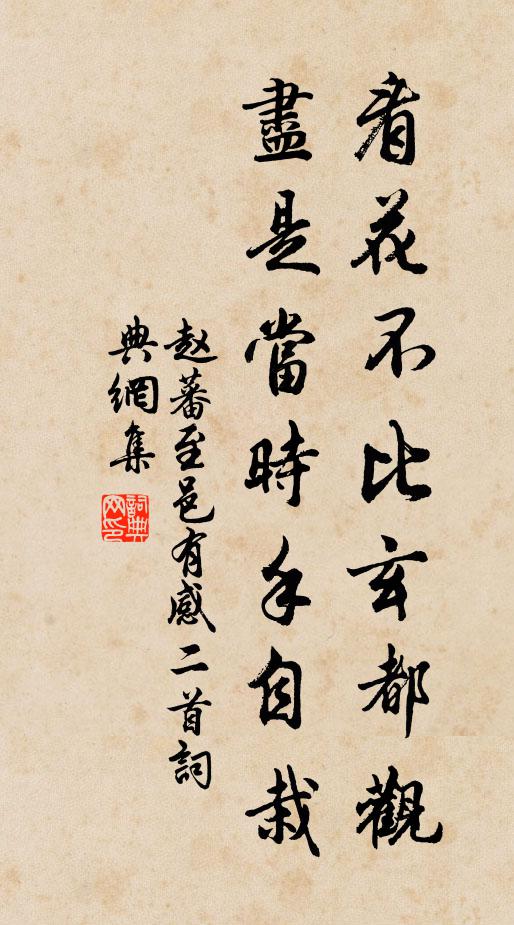 看花不比玄都觀
盡是當時手自栽
赵蕃至邑有感二首詞
典網集
詞典
网印